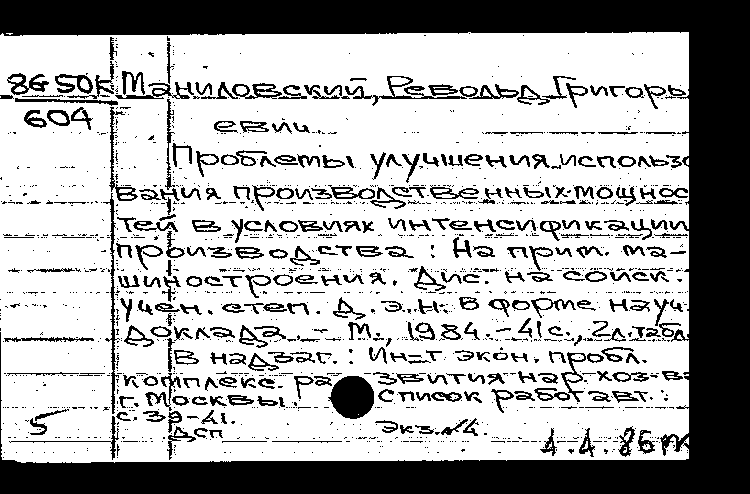 8G50K Маниловский, Револьд Григорь
604
евич.
Проблемы улучшения использо
вания производственных мощнос
тей в условиях интенсификации
производства : На прим. ма-
шиностроения. Дис. на соиск.
учен. степ. д.э.н. В форме науч.
доклада. - М., 1984. - 41с., 2л.табл.
В надзаг. : Ин-т экон. пробл.
комплекс. развития нар. хоз-ва
г. Москвы. Список работ авт. :
с. 39-41.
5 дсп экз.№4.